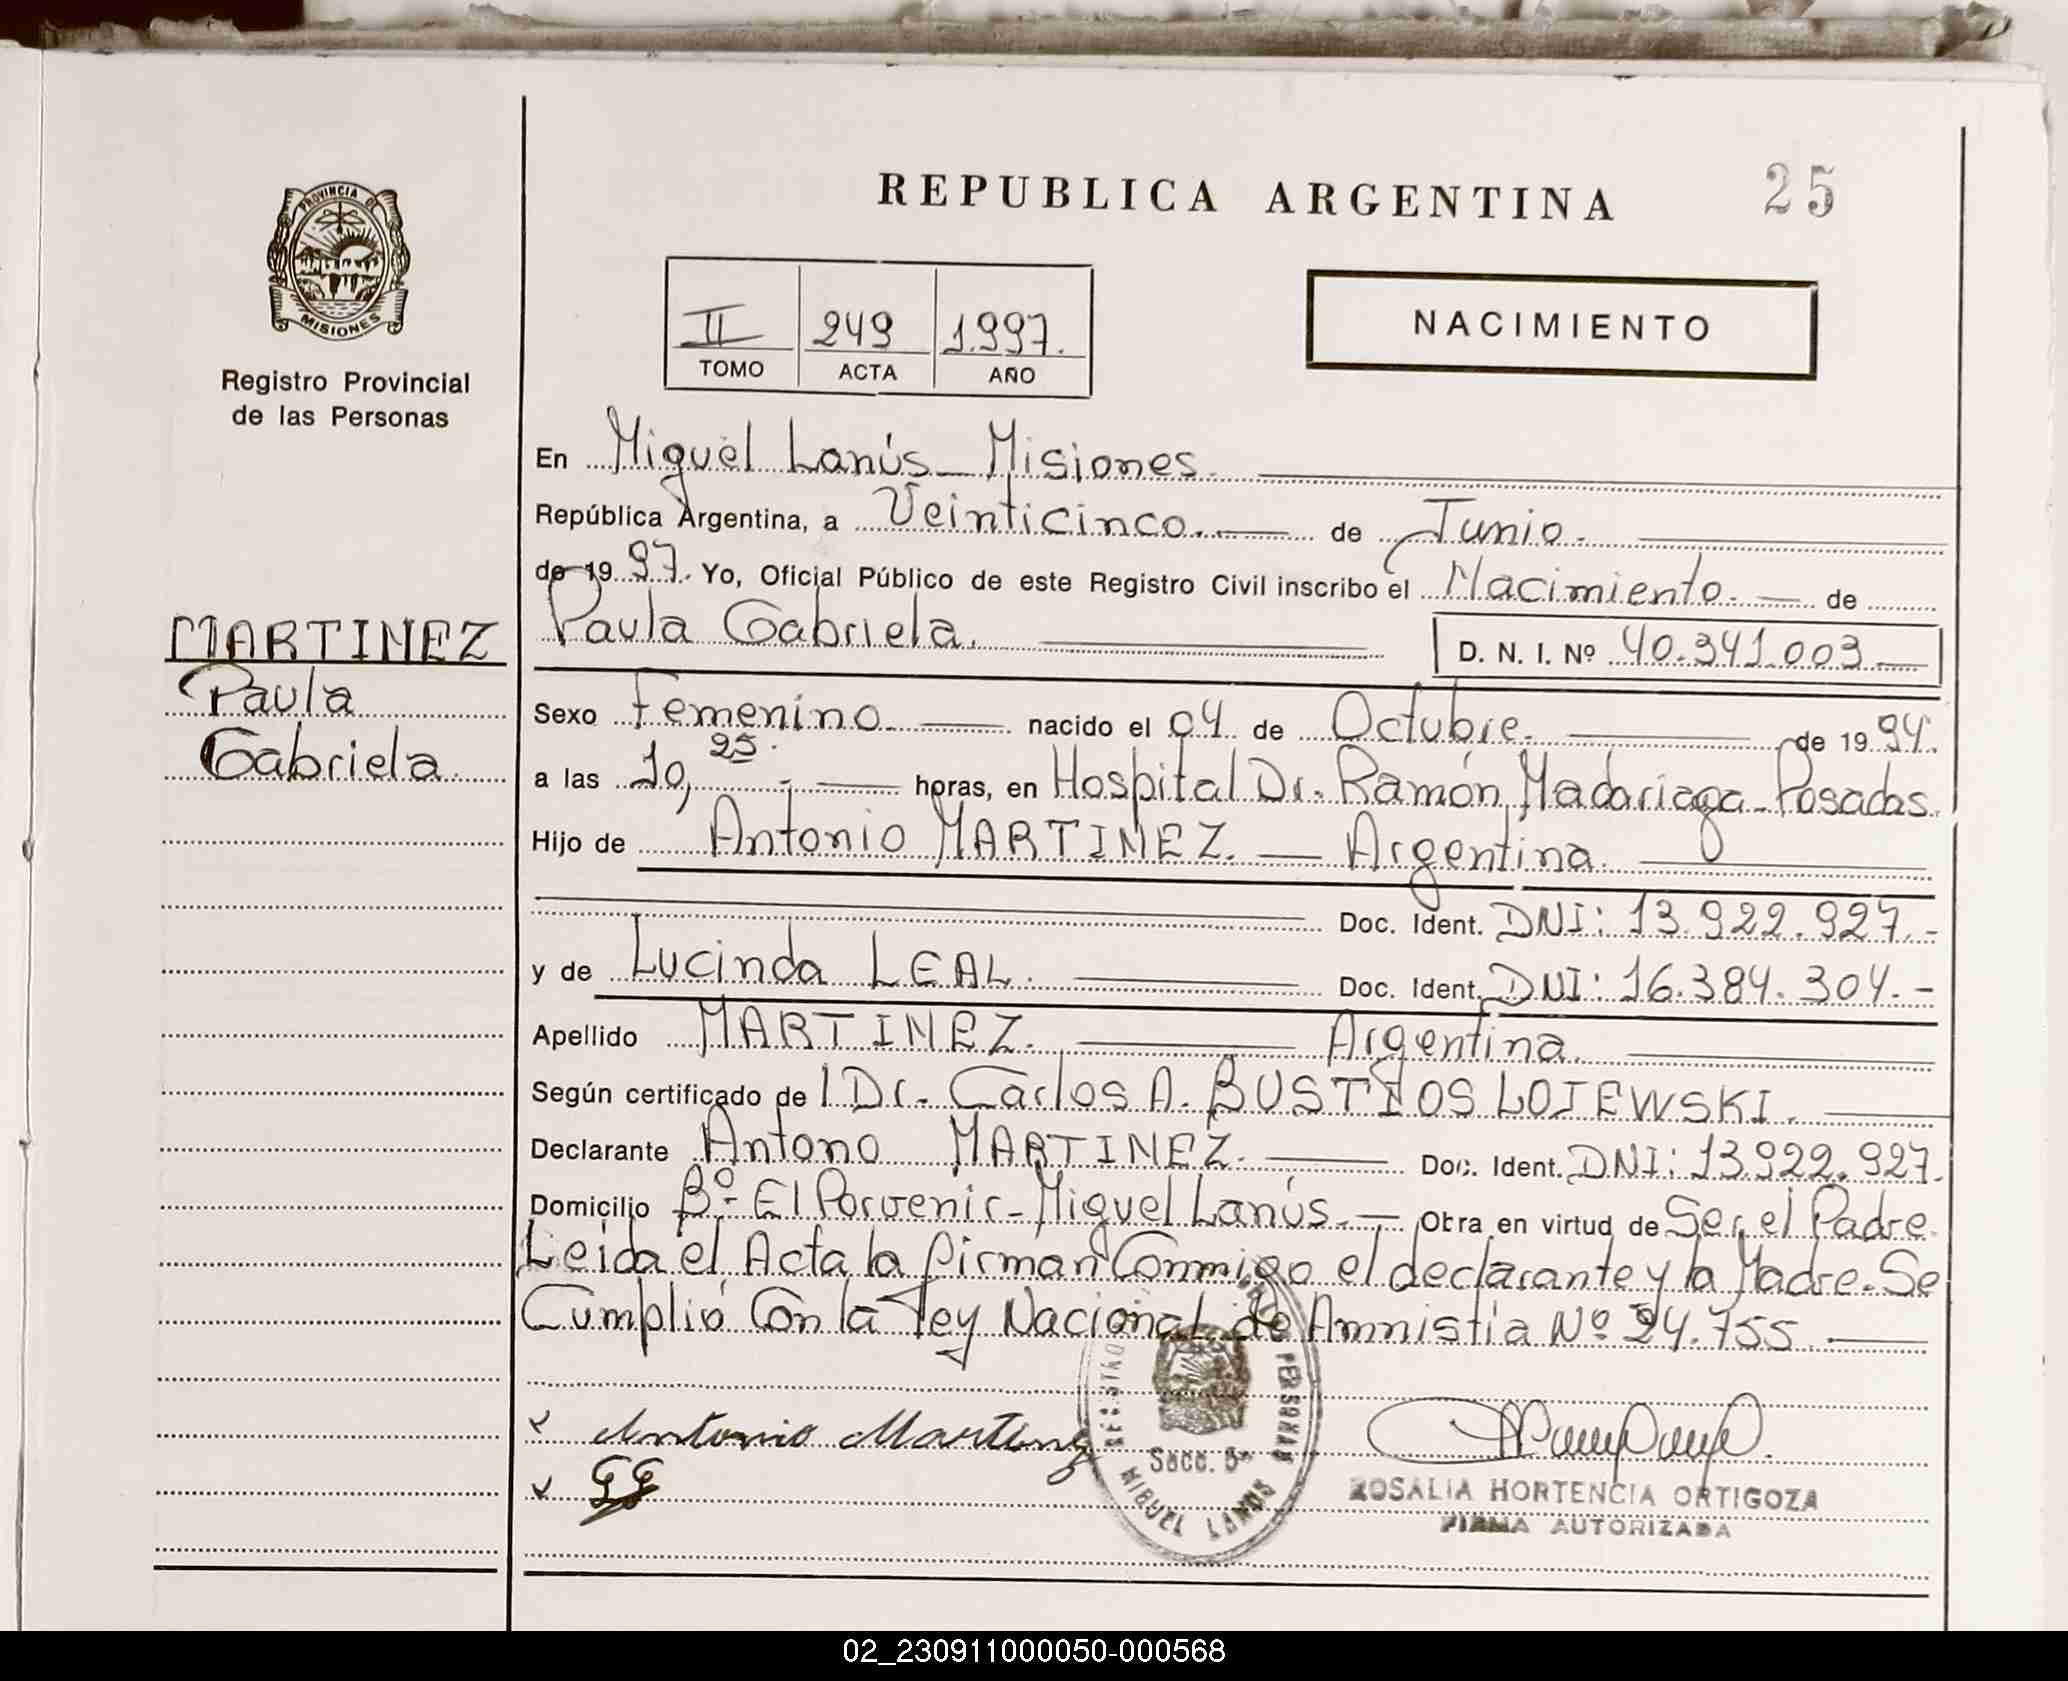 REPUBLICA ARGENTINA
25
PROVINCIA DE
MISIONES
Registro Provincial
de las Personas
II 249 1.997.
TOMO ACTA AÑO
NACIMIENTO
En Miguel Lanús - Misiones.
República Argentina, a Veinticinco. de Junio.
de 1997. Yo, Oficial Público de este Registro Civil inscribo el Nacimiento. de
Paula Gabriela. D. N. I. Nº 40.341.003
MARTINEZ
Paula
Gabriela
Sexo Femenino nacido el 04 de Octubre. de 1994.
a las 10,25. horas, en Hospital Dr. Ramón Madariaga - Posadas.
Hijo de Antonio MARTINEZ. Argentina.
Doc. Ident. DNI: 13.922.927.-
y de Lucinda LEAL. Doc. Ident. DNI: 16.384.304.-
Apellido MARTINEZ. Argentina.
Según certificado de l Dr. Carlos A. BUSTIOS LOJEWSKI.
Declarante Antono MARTINEZ. Doc. Ident. DNI: 13.922.927.
Domicilio Bº- El Porvenir - Miguel Lanús. Obra en virtud de Ser el Padre.
Leida el Acta la firman Conmigo el declarante y la Madre. Se
Cumplió Con la Ley Nacional de Amnistia Nº 24.755.
Antonio Martinez
Secc. 5ª
MIGUEL LANUS
PERSONAS
ROSALIA HORTENCIA ORTIGOZA
FIRMA AUTORIZADA
02_230911000050-000568